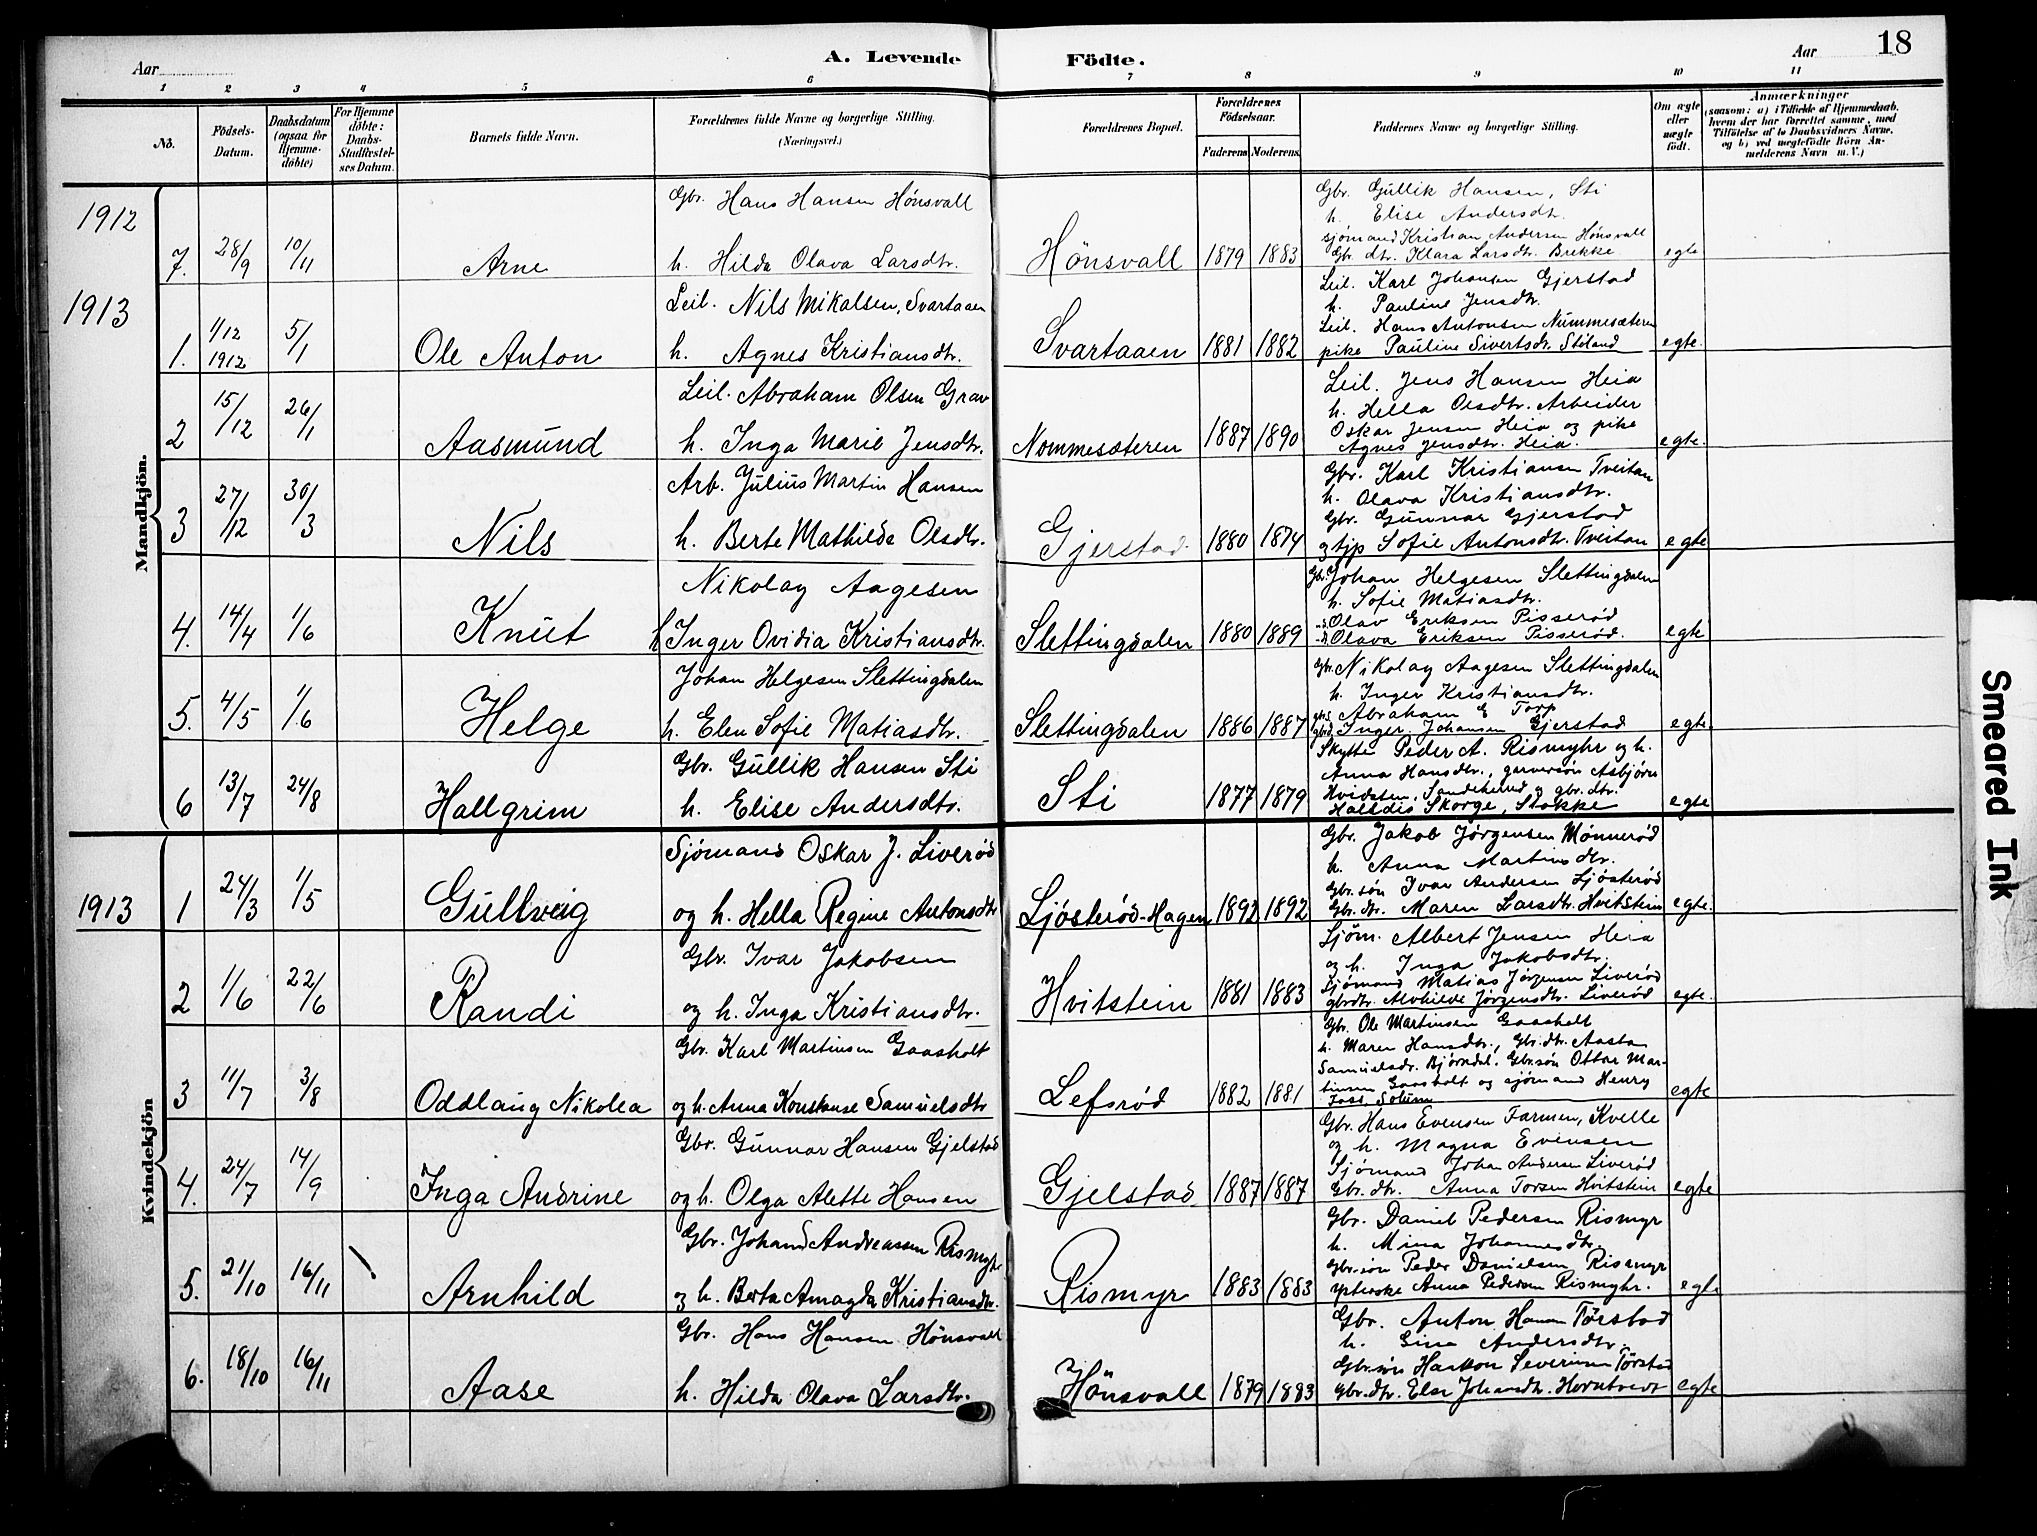 18
A. Levende Födte.
Aar
Aar
1 2 3 4 5 6 7 8 9 10 11
No.
Födsels-Datum.
Daabsdatum (ogsaa for Hjemme-döbte)
For Hjemme döbte: Daabs-Stadfæstel-ses Datum.
Barnets fulde Navn.
Forældrenes fulde Navne og borgerlige Stilling.
(Næringsvei.)
Forældrenes Bopæl.
Forældrenes Födselsaar.
Faderens Moderens
Faddernes Navne og borgerlige Stilling.
Om ægte eller uægte födt.
Anmærkninger
(saasom: a) i Tilfælde af Hjemmedaab, hvem der har forrettet samme, med Tilföielse af to Daabsvidners Navne, og b) ved uægtefödte Börn Anmelderens Navn m. V.)
Mandkjön.
1912
Gbr. Hans Hansen Hönsvall
7. 28/9 10/11 Arne h. Hilda Olava Larsdtr. Hönsvall 1879 1883
Gbr. Gullik Hansen, Sti
h. Elise Andersdtr.
sjømand Kristian Andersen Hönsvall
Gbr. dtr. Klara Larsdtr. Brekke egte
1913
Leil. Nils Mikalsen, Svartaaen
1. 1/12 1912 5/1 Ole Anton h. Agnes Kristiansdtr. Svartaaen 1881 1882
Leil. Karl Johansen Gjerstad
h. Pauline Jensdtr.
Leil. Hans Antonsen Nummesæteren
pike Pauline Sivertsdtr. Stöland egte.
Leil. Abraham Olsen Grav
2 15/12 26/1 Aasmund h. Inga Marie Jensdtr. Nommesæteren 1887 1890
Leil. Jens Hansen Heia
h. Hella Olsdtr. Arbeider
Oskar Jensen Heia og pike
Agnes Jensdtr. Heia. egte.
Arb. Julius Martin Hansen
3 27/12 30/3 Nils h. Berte Mathilde Olsdtr. Gjerstad 1880 1874
Gbr. Karl Kristiansen Tveitan
h. Olava Kristiansdtr.
Gbr. Gunnar Gjerstad
og tjp Sofie Antonsdtr. Tveitan egte
Nikolay Aagesen
4. 14/4 1/6 Knut h Inger Ovidia Kristiansdtr. Slettingdalen 1880 1889
Gbr. Johan Helgesen Slettingdalen
h. Sofie Matiasdtr.
Olav Eriksen Pisserød
Olava Eriksen Pisserød. egte
Johan Helgesen Slettingdalen
5. 4/5 1/6 Helge h. Elen Sofie Matiasdtr. Slettingdalen 1886 1887
Gbr. Nikolay Aagesen Slettingdalen
h. Inger Kristiansdtr.
Abraham E Torp
Inger Johansen Gjerstad egte.
Gbr. Gullik Hansen Sti
6 13/7 24/8 Hallgrim h. Elise Andersdtr. Sti 1877 1879
Skytte Peder A. Rismyhr og h.
Anna Hansdtr., garversøn Asbjørn
Hvidsten, Sandeherred og gbr. dtr.
Halldis Skorge, Stokke egte
Kvindekjön
1913
Sjømand Oskar J. Liverød
1 24/3 1/5 Gullveig og h. Hella Regine Antonsdtr Ljösterød-Hagen 1892 1892
Gbr. Jakob Jørgensen Mønnerød
h. Anna Martinsdtr.
Gbr. søn Ivar Andersen Ljösterød
Gbr. dtr. Maren Larsdtr. Hvitstein egte.
Gbr. Ivar Jakobsen
2 1/6 22/6 Randi og h. Inga Kristiansdtr. Hvitstein 1881 1883
Sjøm. Albert Jensen Heia
og h. Inga Jakobsdtr.
Sjømand Matias Jørgensen Liverød
gbrdtr. Alvhilde Jørgensdtr. Liverød egte.
Gbr. Karl Martinsen Gaasholt
3 11/7 3/8 Oddlaug Nikolea og h. Anna Konstanse Samuelsdtr Lefsrød 1882 1881
Gbr. Ole Martinsen Gaasholt
h. Maren Hansdtr., Gbr. dtr. Aasta
Samuelsdr. Bjørndal. Gbr. søn Ottar Mar-
tinsen Gaasholt og sjømand Henry
Foss Solum egte
Gbr. Gunnar Hansen Gjelstad
4. 24/7 14/9 Inga Andrine og h. Olga Alette Hansen Gjelstad 1887 1887
Gbr. Hans Evensen Farmen, Kvelle
og h. Magna Evensen
Sjømand Johan Andersen Liverød
Gbr. dtr. Anna Torsen Hvitstein egte
Gbr. Johand Andreassen Rismyhr
5. 21/10 16/11 Arnhild og h. Berta Amagda Kristiansdtr. Rismyr 1883 1883
Gbr. Daniel Pedersen Rismyr
h. Mina Johannesdtr.
Gbr. søn Peder Danielsen Rismyr
Anna Pedersen Rismyhr. egte
Gbr. Hans Hansen Hönsvall
6. 18/10 16/11 Aase h. Hilda Olava Larsdtr. Hönsvall 1879 1883
Gbr. Anton Hansen Tørstad
h. Gina Andersdtr.
Gbr. søn Haakon Severinsen Tørstad
Gbr. dtr. Else Johansdtr. Horntvedt egte
Smeared Ink